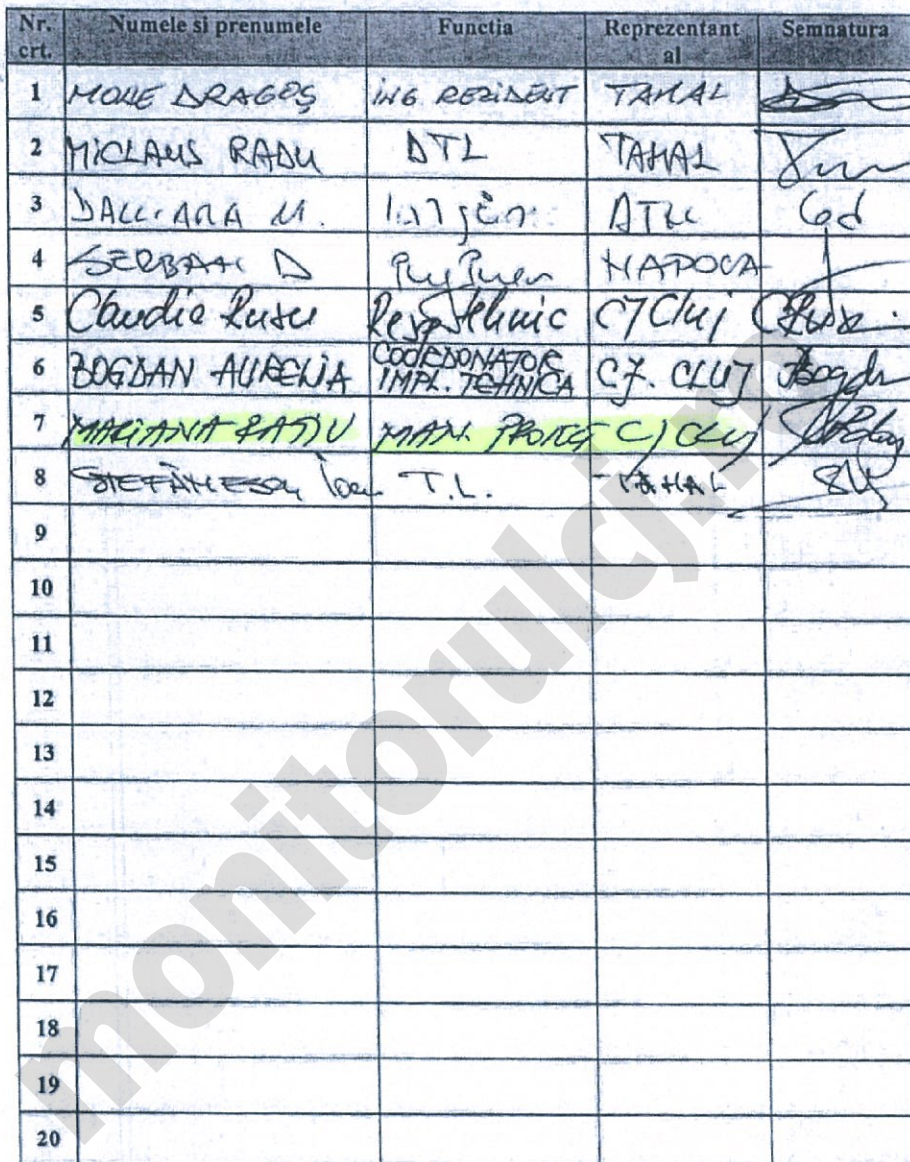 Nr. crt. Numele si prenumele Functia Reprezentant al Semnatura
1 MOLE DRAGOȘ ING REZIDENT TAHAL
2 MICLAUS RADU DTL TAHAL
3 DALL'ARA M.
4 SERBAN D NAPOCA
5 Claudia Rusu Resp tehnic CJ Cluj
6 BOGDAN AURELIA COORDONATOR IMPL. TEHNICA CJ. CLUJ Bogdan
7 MARIANA RATIU MAN. PROIECT CJ CLUJ
8 STEFĂNESCU Ioan T.L. TAHAL
9
10
11
12
13
14
15
16
17
18
19
20
monitorulcj.ro